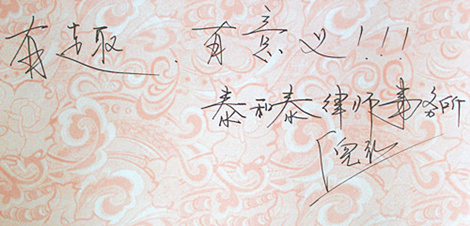 有趣、有意义!!!
泰和泰律师事务所